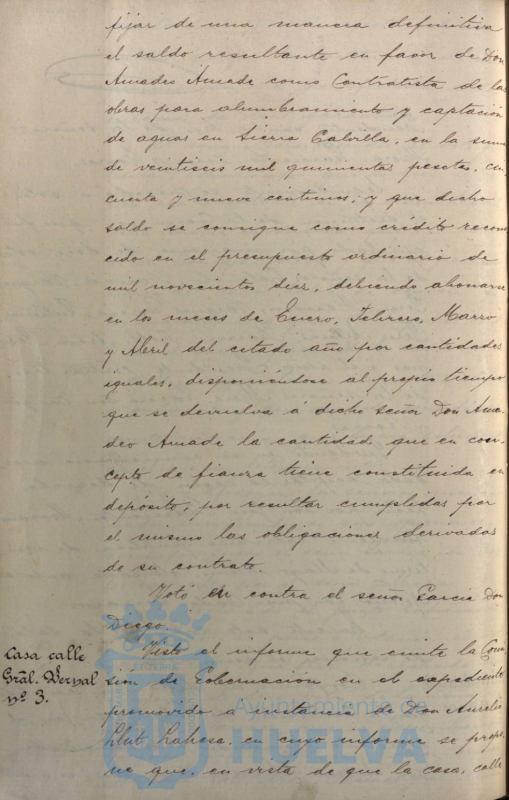 fijar de una manera definitiva
el saldo resultante en favor de Don
Amadeo Amade como Contratista de las
obras para alumbramiento y captación
de aguas en Sierra Calvilla, en la suma
de veintiseis mil quinientas pesetas, cin-
cuenta y nueve céntimos; y que dicho
saldo se consigne como crédito recono-
cido en el presupuesto ordinario de
mil novecientos diez, debiendo abonarse
en los meses de Enero, Febrero, Marzo
y Abril del citado año por cantidades
iguales, disponiéndose al propio tiempo
que se devuelva á dicho señor Don Ama-
deo Amade la cantidad que en con-
cepto de fianza tiene constituida en
depósito, por resultar cumplidas por
el mismo las obligaciones derivadas
de su contrato.
Votó en contra el señor Garcia Don
Diego.
Casa calle
Gral. Bernal
nº 3.
Visto el informe que emite la Comi-
sión de Gobernación en el expediente
promovido á instancia de Don Aurelio
en cuyo informe se propo-
ne que, en vista de que la casa, calle
Ayuntamiento de
HUELVA